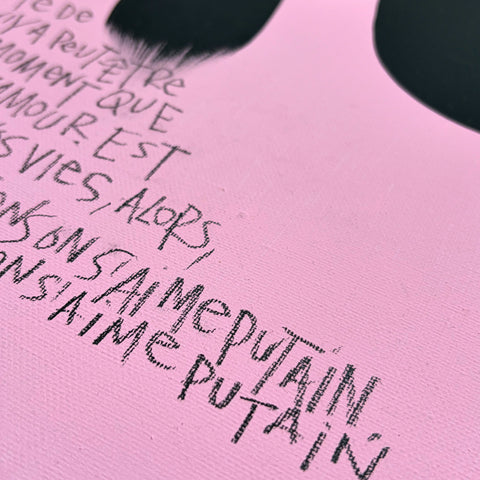 DE
PEUT ÊTRE
MOMENT QUE
AMOUR. EST
VIES, ALORS,
ON S'AIME PUTAIN.
ON S'AIME PUTAIN